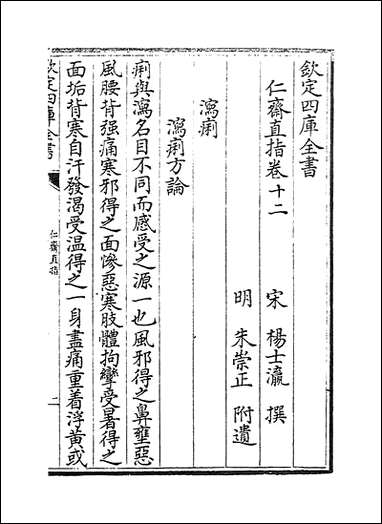 欽定四庫全書
仁齋直指卷十二
宋 楊士瀛 撰
明 朱崇正 附遺
瀉痢
瀉痢方論
痢與瀉名目不同而感受之源一也風邪得之鼻壅惡
風腰背强痛寒邪得之面慘惡寒肢體拘攣受暑得之
面垢背寒自汗發渴受温得之一身盡痛重着浮黄或
欽定四庫全書
仁齋直指
二